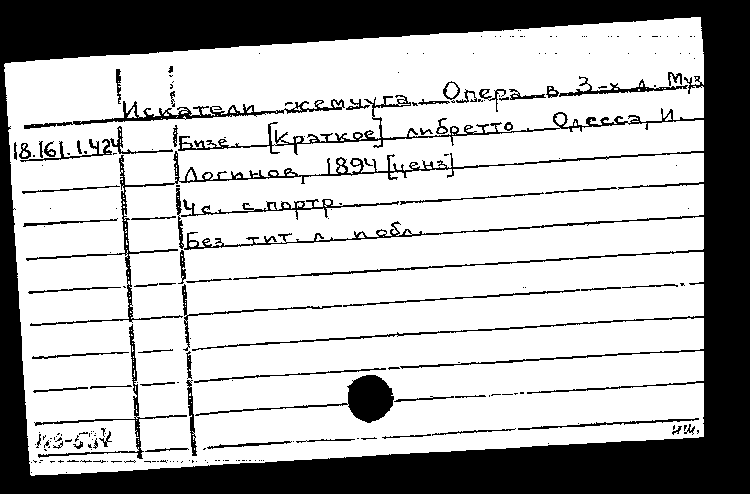 Искатели жемчуга. Опера в 3-х д. Муз
18.161.1.424. Бизе. [Краткое] либретто. Одесса, И.
Логинов, 1894 [ценз]
4 с. с портр.
Без тит. л. и обл.
нш.